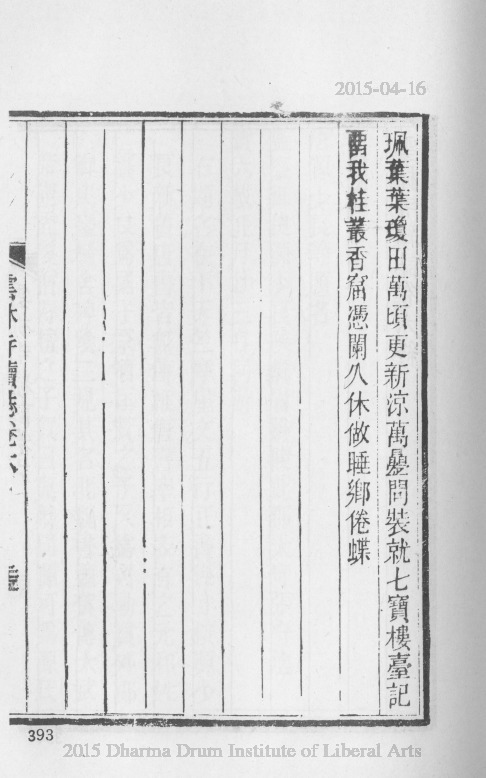 2015-04-16
珮葉葉瓊田萬頃更新涼萬疊問裝就七寶樓臺記
畱我桂叢香窟憑闌久休做睡鄉倦蝶
雲林寺續誌卷六
393
2015 Dharma Drum Institute of Liberal Arts